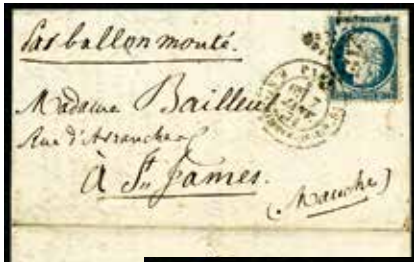 Par ballon monté.
Madame Bailleul
Rue d'Avranches
à St. James.
(Manche)
PARIS
7
JANV